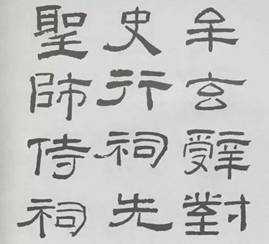 牟玄辭對
史行祠先
聖師侍祠